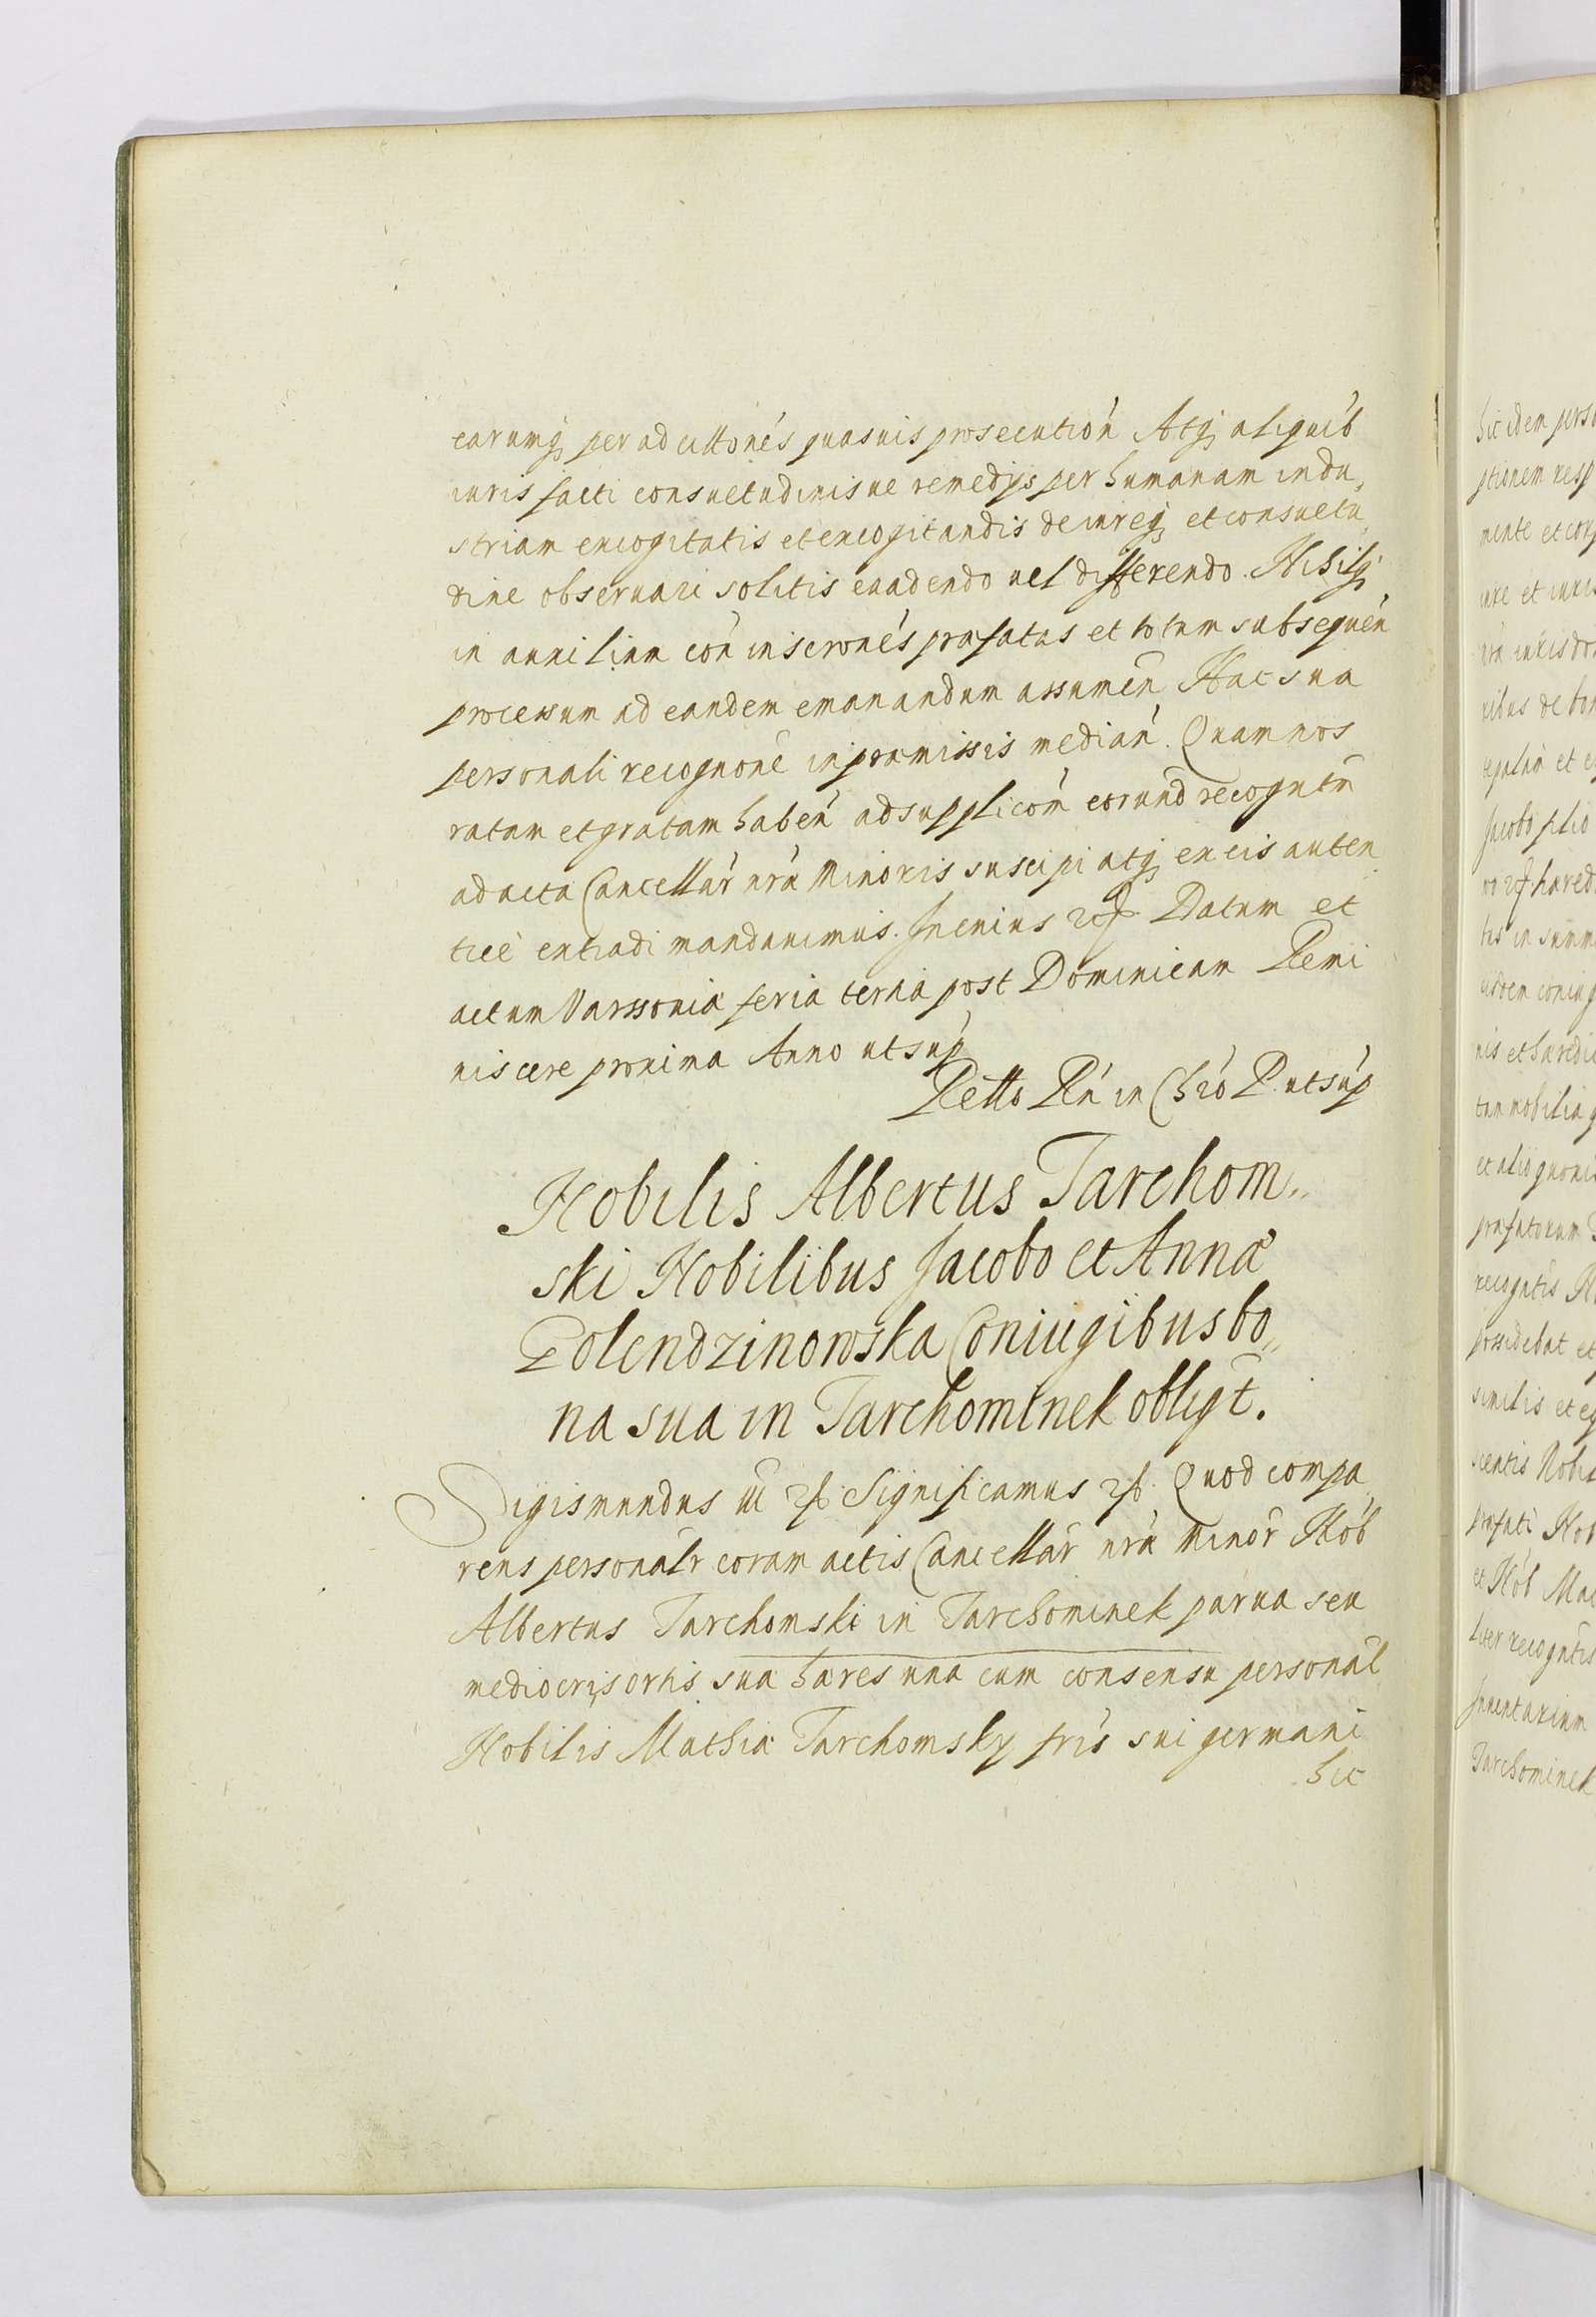 earumq; per ad cittónés quasuis prosecutión Atq; aliquib́
iuris facti consuetudinisue remedijs per humanam indu,
striam excogitatis et excogitandis de iureq; et consuetu,
dine obseruari solitis euadendo uel differendo. Nihilq;
in auxilium cón inscronés præfatas et totum subsequén
processum ad eandem emanandum assumen̄ Hac sua
personali recognone in præmissis medián. Quam nos
ratam et gratam habén ad supplicóm eorund̄ recognt̄m
ad acta Cancellár nrá Minoris suscipi atq; ex eis auten
ticè extradi mandauimus. In cuius rei Datum et
actum Varssouiæ feria tertiá post Dominicam Remi
niscere proxima Anno ut súp
Petto Rń in Chró P. ut súp
Nobilis Albertus Tarchom,,
ski Nobilibus Jacobo et Annæ
Golendzinowska Coniugibus bo,,
na sua in Tarchominek obligt̄.
Sigismundus III Significamus Quod compa,
rens personalr coram actis Cancellár nrá Minor̄ Nob́
Albertus Tarchomski in Tarchominek parua seu
mediocris ortis sua hæres una cum consensu personal̄
Nobilis Mathiæ Tarchomsky frís sui germani
hic
hic idem perso
ptionem resp
mente et corp
iure et iuris
nrá iurisd
nibus de bon
Jacobo filio
hæred
tis in summ
nis et hæredi
tam mobilia
præfatorum
recogntis
possidebat et
similis et eq
præfati Nob
et Nob́ Mat
liter recogntis
Inuentarium
Tarchominek